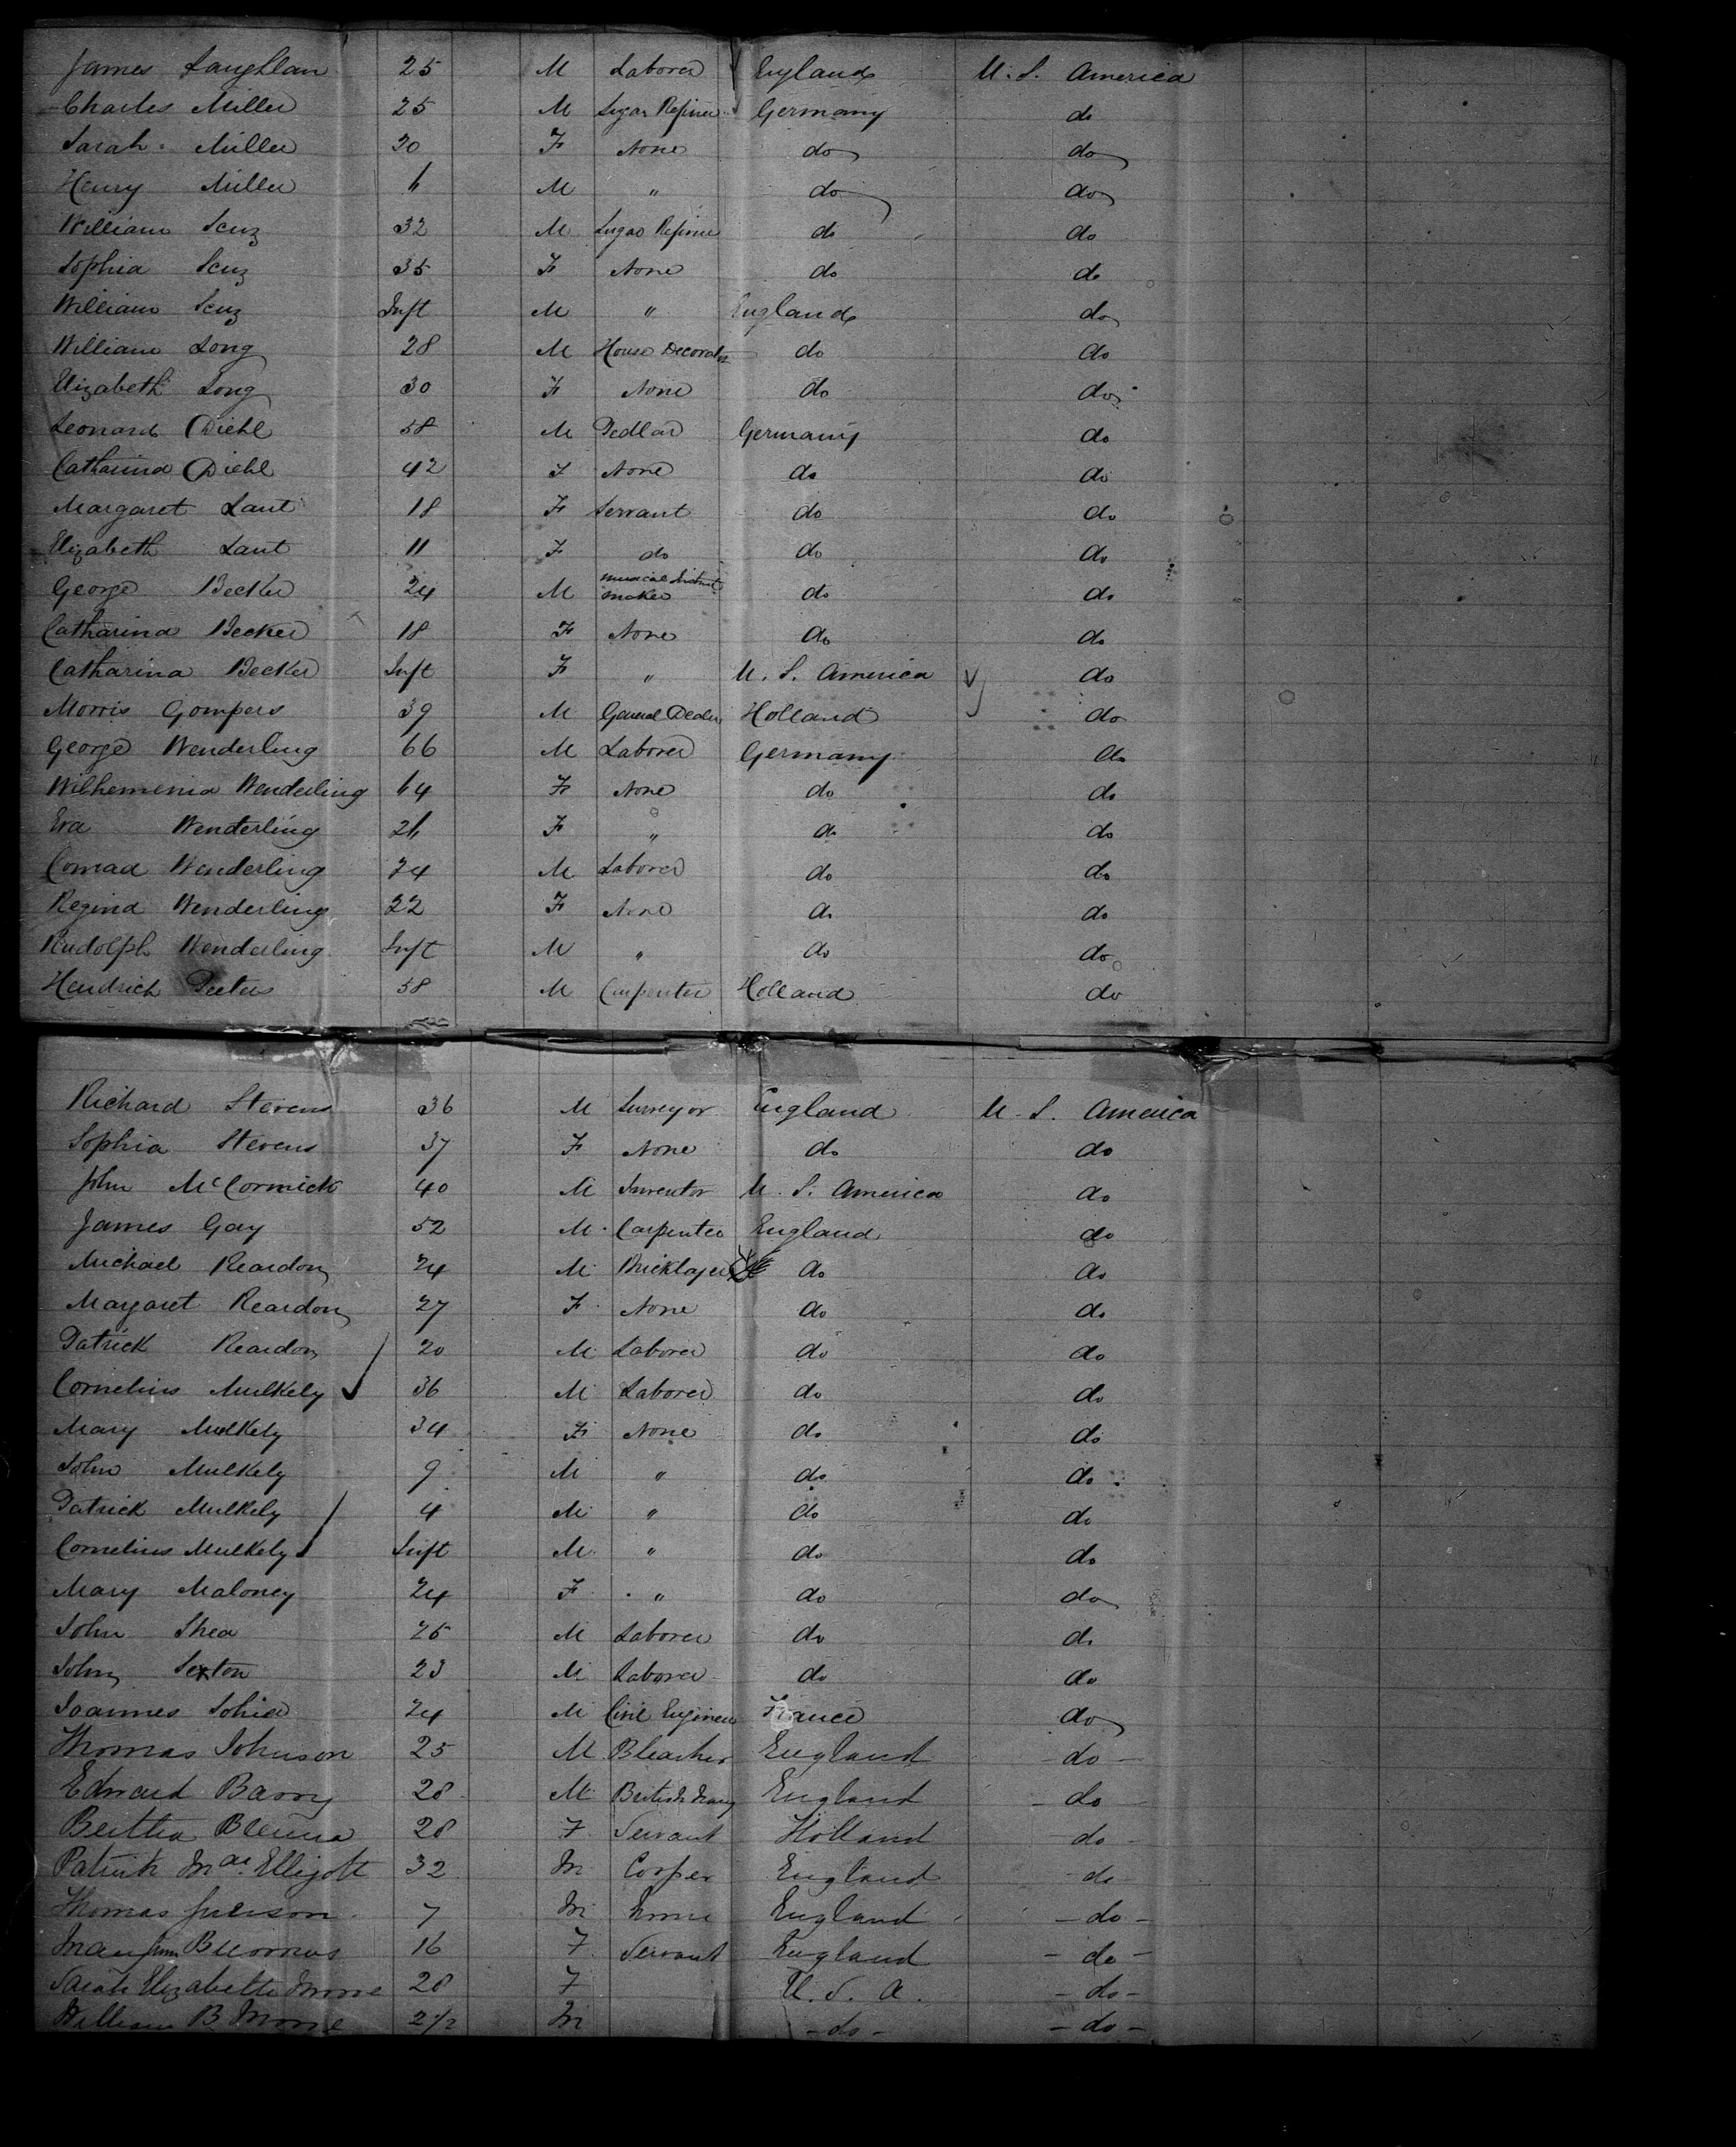 James Laughlan 25 M Laborer England U. S. America
Charles Miller 25 M Sugar Refiner Germany do
Sarah Miller 20 F None do do
Henry Miller 6 M " do do
William Senz 32 M Sugar Refiner do do
Sophia Senz 35 F None do do
William Senz Inft M " England do
William Long 28 M House Decorator do do
Elizabeth Long 30 F None do do
Leonard Diehl 58 M Pedlar Germany do
Catharina Diehl 42 F None do do
Margaret Laut 18 F Servant do do
Elizabeth Laut 11 F do do do
George Becker 24 M musical Instrmt maker do do
Catharina Becker 18 F None do do
Catharina Becker Inft F " U. S. America do
Morris Gompers 39 M General Dealer Holland do
George Wenderling 66 M Laborer Germany do
Wilhemenia Wenderling 64 F None do do
Eva Wenderling 26 F " do do
Conrad Wenderling 24 M Laborer do do
Regina Wenderling 22 F None do do
Rudolph Wenderling Inft M " do do
Hendrich Peeters 58 M Carpenter Holland do
Richard Stevens 36 M Surveyor England U. S. America
Sophia Stevens 37 F None do do
John McCormick 40 M Inventor U. S. America do
James Gay 52 M Carpenter England do
Michael Reardon 24 M Bricklayer do do
Margaret Reardon 27 F None do do
Patrick Reardon 20 M Laborer do do
Cornelius Mulkely 36 M Laborer do do
Mary Mulkely 34 F None do do
John Mulkely 9 M " do do
Patrick Mulkely 4 M " do do
Cornelius Mulkely Inft M " do do
Mary Maloney 24 F " do do
John Shea 25 M Laborer do do
John Sexton 23 M Laborer do do
Joannes 24 M Civil Engineer France do
Thomas Johnson 25 M Bleacher England do
Edward Barry 28 M British Navy England do
Bertha 28 F Servant Holland do
Patrick Mac Elligott 32 M Cooper England do
Thomas 7 M None England do
16 F Servant England do
Sarah Elizabeth 28 F U. S. A. do
William B 2 1/2 M do do